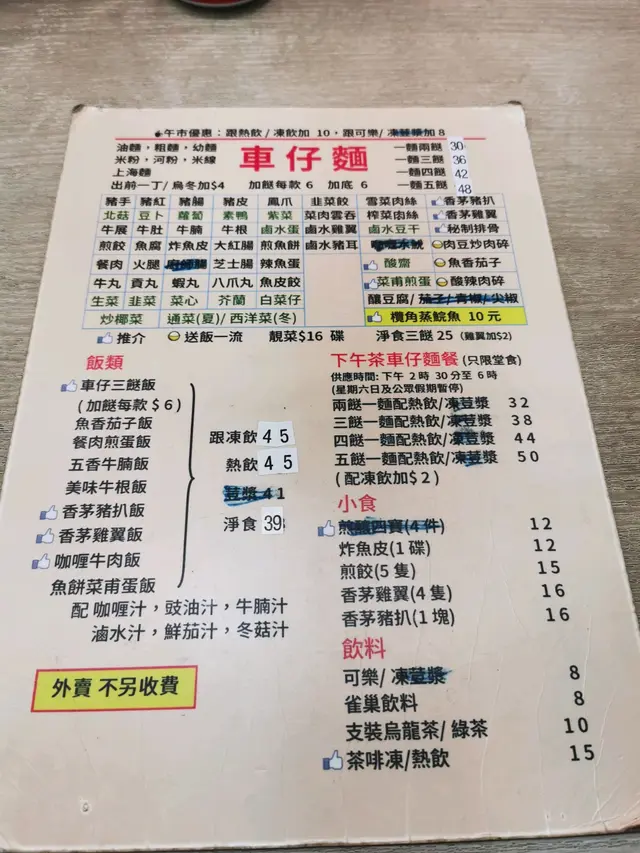 午市優惠：跟熱飲/凍飲加 10，跟可樂/凍荳漿加8
油麵，粗麵，幼麵
米粉，河粉，米線
上海麵
車仔麵
一麵兩餸 30
一麵三餸 36
一麵四餸 42
一麵五餸 48
出前一丁/烏冬加$4 加餸每款 6 加底 6
豬手 豬紅 豬腸 豬皮 鳳爪 韭菜餃 雪菜肉絲 香茅豬扒
北菇 豆卜 蘿蔔 素鴨 紫菜 菜肉雲吞 榨菜肉絲 香茅雞翼
牛展 牛肚 牛腩 牛根 鹵水蛋 鹵水雞翼 鹵水豆干 秘制排骨
煎餃 魚腐 炸魚皮 大紅腸 煎魚餅 鹵水豬耳 肉豆炒肉碎
餐肉 火腿 芝士腸 辣魚蛋 酸齋 魚香茄子
牛丸 貢丸 蝦丸 八爪丸 魚皮餃 菜甫煎蛋 酸辣肉碎
生菜 韭菜 菜心 芥蘭 白菜仔 釀豆腐/茄子/青椒/尖椒
炒椰菜 通菜(夏)/西洋菜(冬) 欖角蒸鯇魚 10元
推介 送飯一流 靚菜$16 碟 淨食三餸 25 (雞翼加$2)
飯類
車仔三餸飯
(加餸每款$6)
魚香茄子飯
餐肉煎蛋飯
五香牛腩飯
美味牛根飯
香茅豬扒飯
香茅雞翼飯
咖喱牛肉飯
魚餅菜甫蛋飯
跟凍飲 45
熱飲 45
荳漿 41
淨食 39
配 咖喱汁，豉油汁，牛腩汁
滷水汁，鮮茄汁，冬菇汁
外賣 不另收費
下午茶車仔麵餐 (只限堂食)
供應時間: 下午 2 時 30 分至 6 時
(星期六日及公眾假期暫停)
兩餸一麵配熱飲/凍荳漿 32
三餸一麵配熱飲/凍荳漿 38
四餸一麵配熱飲/凍荳漿 44
五餸一麵配熱飲/凍荳漿 50
(配凍飲加$2)
小食
煎釀四寶(4件) 12
炸魚皮(1碟) 12
煎餃(5隻) 15
香茅雞翼(4隻) 16
香茅豬扒(1塊) 16
飲料
可樂/凍荳漿 8
雀巢飲料 8
支裝烏龍茶/綠茶 10
茶啡凍/熱飲 15